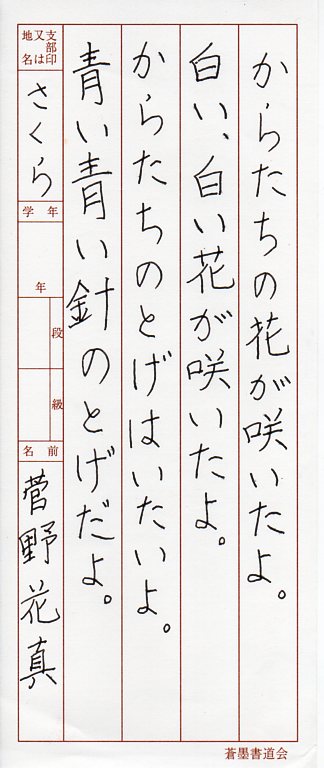 からたちの花が咲いたよ。
白い、白い花が咲いたよ。
からたちのとげはいたいよ。
青い青い針のとげだよ。
支部印
又は
地名
さくら
学年
年
段
級
名前
菅野花真
蒼墨書道会